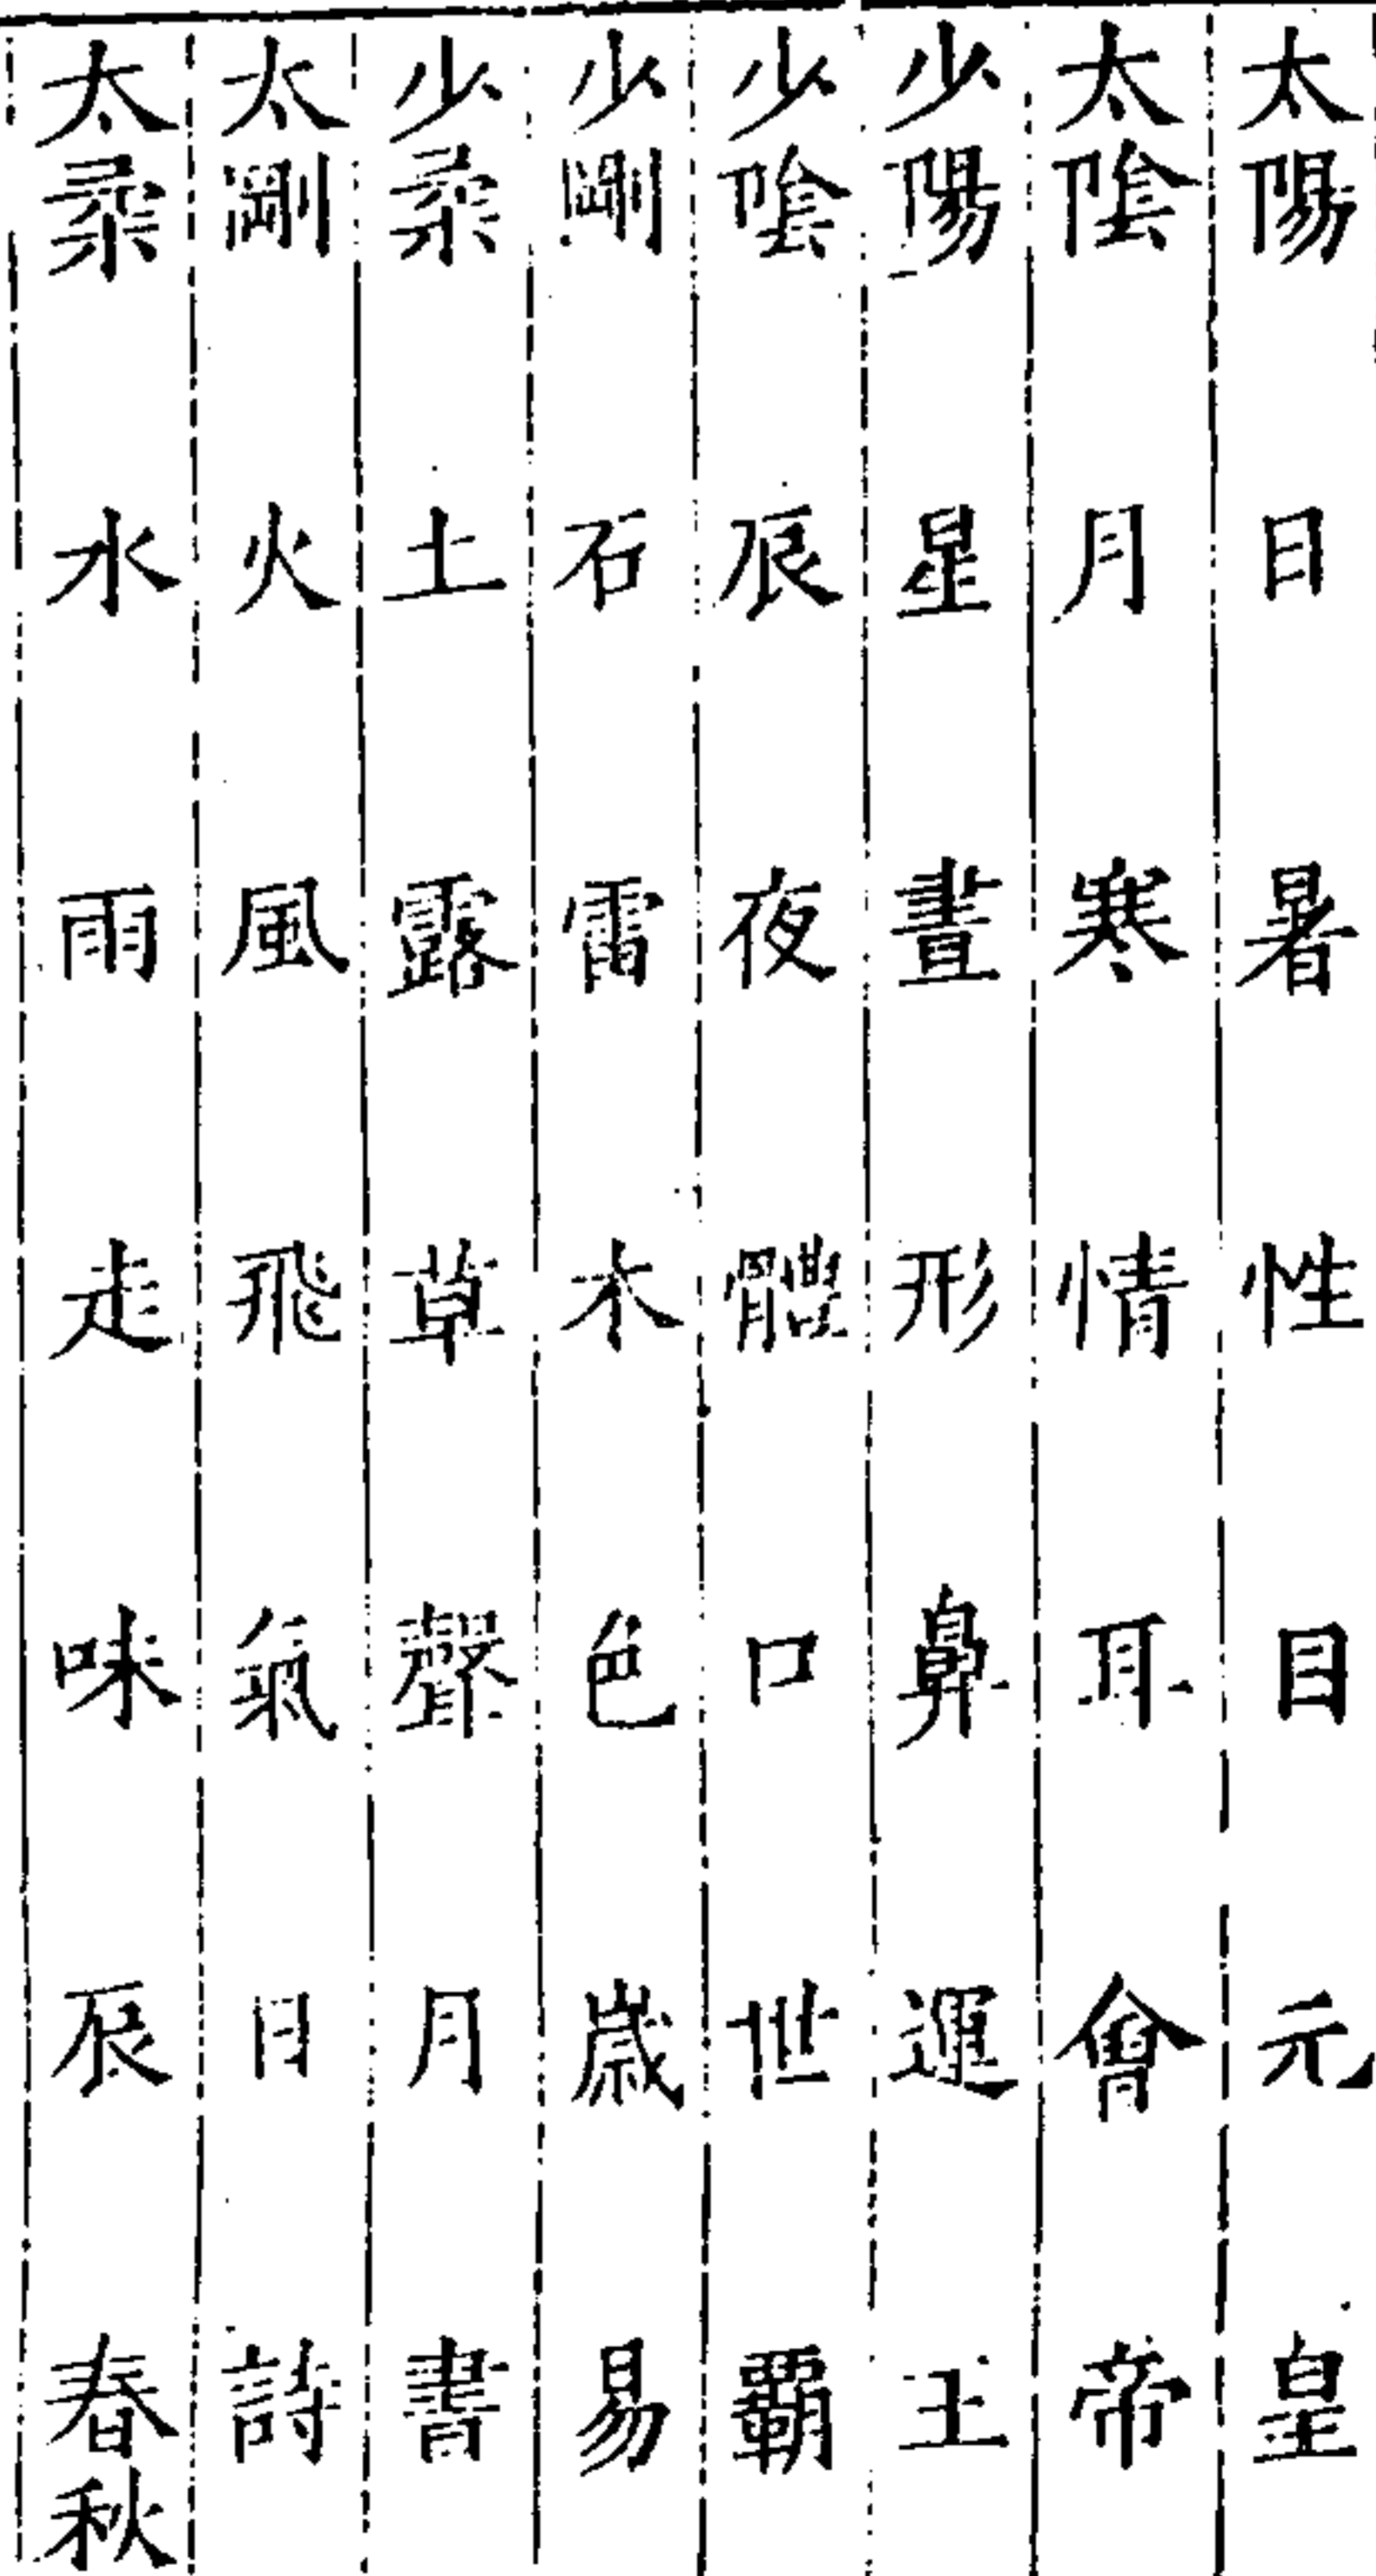 太陽 日 暑 性 目 元 皇
太陰 月 寒 情 耳 會 帝
少陽 星 晝 形 鼻 運 王
少陰 辰 夜 體 口 世 霸
少剛 石 雷 木 色 歲 易
少柔 土 露 草 聲 月 書
太剛 火 風 飛 氣 日 詩
太柔 水 雨 走 味 辰 春秋